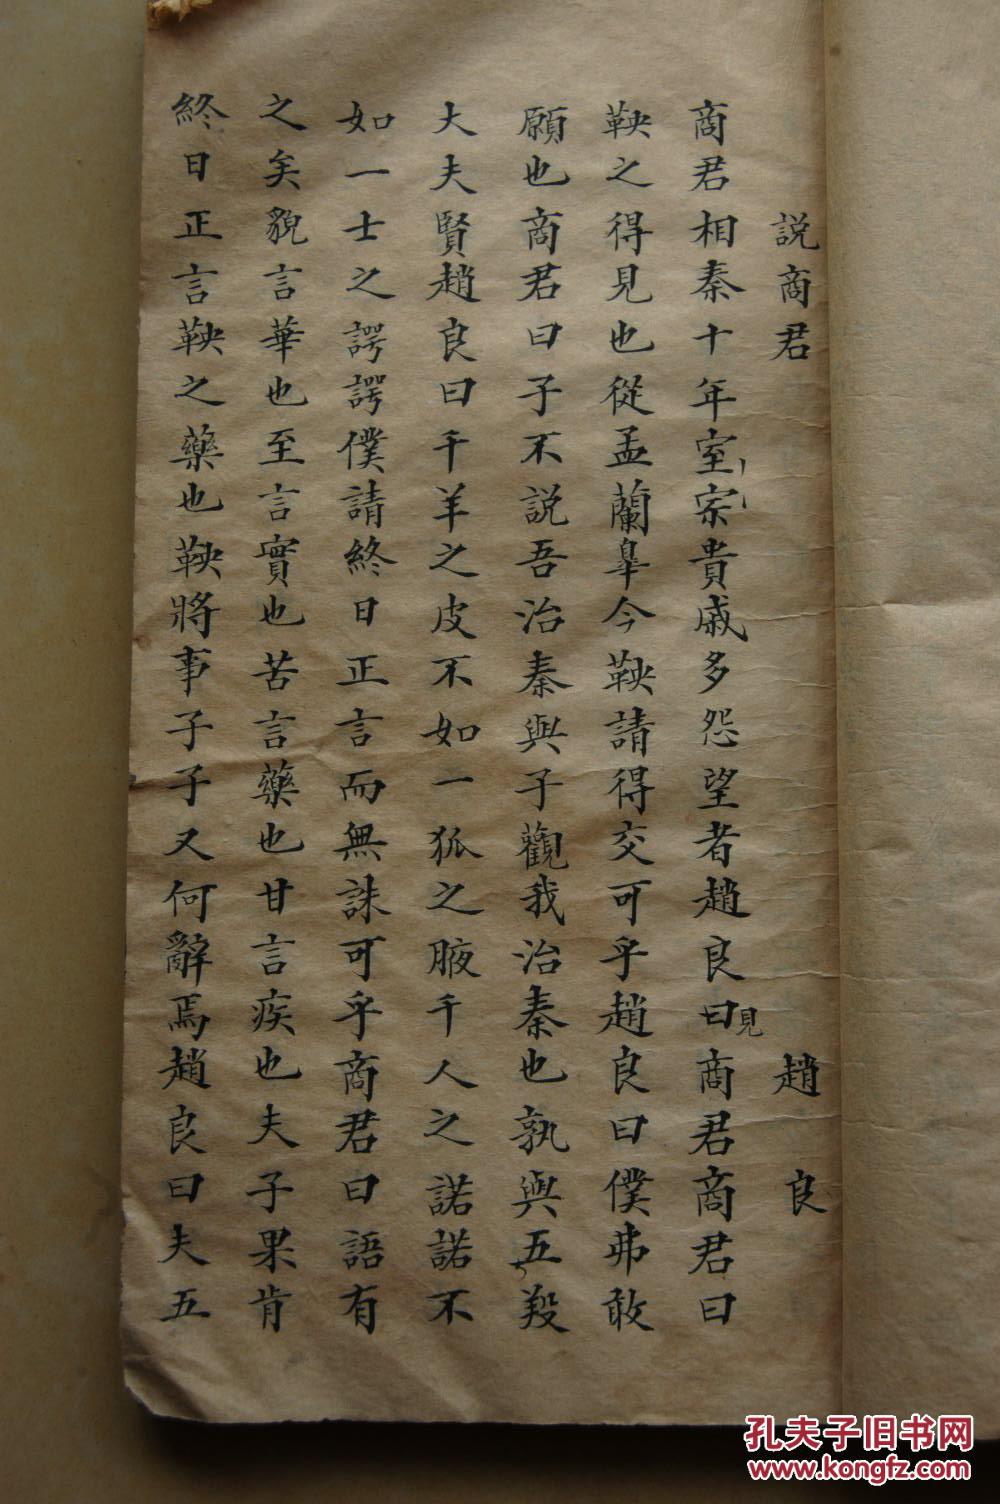 説商君 趙良
商君相秦十年室宗貴戚多怨望者趙良曰見商君商君曰
鞅之得見也從孟蘭皐今鞅請得交可乎趙良曰僕弗敢
願也商君曰子不説吾治秦與子觀我治秦也孰與五羖
大夫賢趙良曰千羊之皮不如一狐之腋千人之諾諾不
如一士之諤諤僕請終日正言而無誅可乎商君曰語有
之矣貌言華也至言實也苦言藥也甘言疾也夫子果肯
終日正言鞅之藥也鞅將事子子又何辭焉趙良曰夫五
孔夫子旧书网
www.kongfz.com